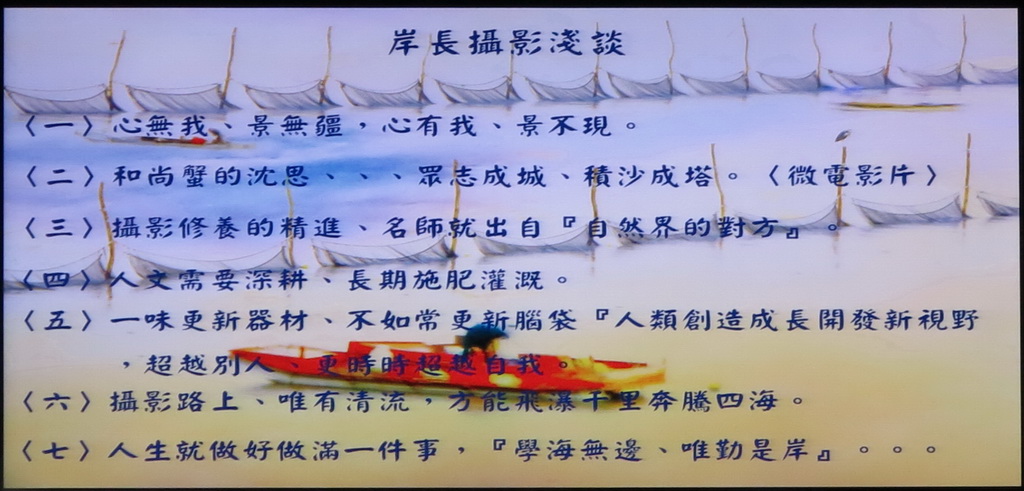 岸長攝影淺談
〈一〉心無我、景無疆，心有我、景不現。
〈二〉和尚蟹的沈思、、、眾志成城、積沙成塔。〈微電影片〉
〈三〉攝影修養的精進、名師就出自『自然界的對方』。
〈四〉人文需要深耕、長期施肥灌溉。
〈五〉一味更新器材、不如常更新腦袋『人類創造成長開發新視野
，超越別人、更時時超越自我。
〈六〉攝影路上、唯有清流，方能飛瀑千里奔騰四海。
〈七〉人生就做好做滿一件事，『學海無邊、唯勤是岸』。。。